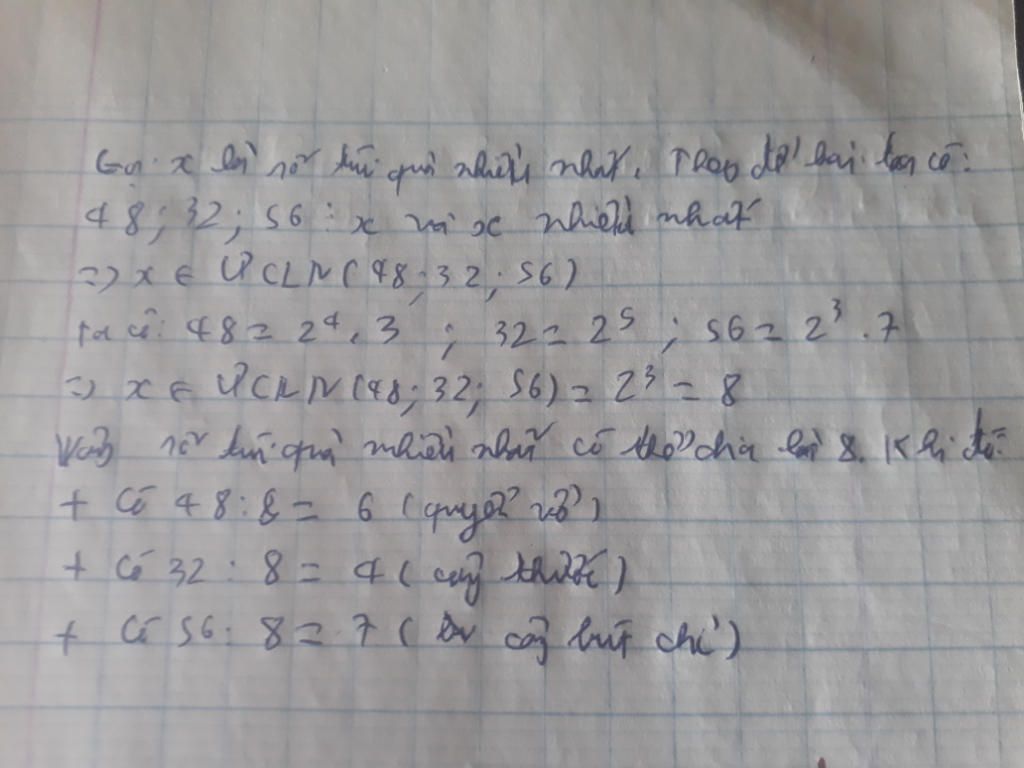 Gọi x là số túi quà nhiều nhất. Theo đề bài ta có:
48; 32; 56 ⋮ x và x nhiều nhất
=> x ∈ ƯCLN(48; 32; 56)
Ta có: 48 = 2⁴. 3 ; 32 = 2⁵ ; 56 = 2³ . 7
=> x ∈ ƯCLN(48; 32; 56) = 2³ = 8
Vậy số túi quà nhiều nhất có thể chia là 8. Khi đó:
+ Có 48 : 8 = 6 (quyển vở)
+ Có 32 : 8 = 4 (cây thước)
+ Có 56 : 8 = 7 (cây bút chì)